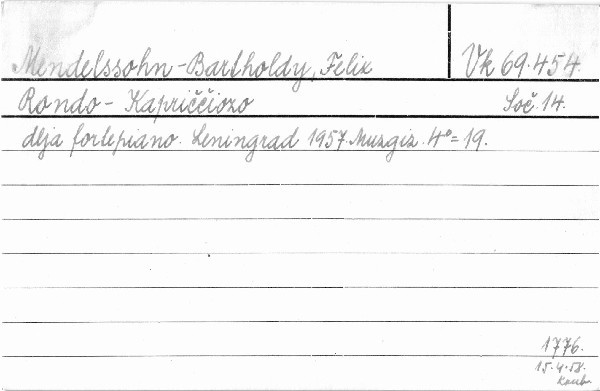 Mendelssohn-Bartholdy, Felix Vk 69.454.
Rondo - Kapriččiozo Soč. 14.
dlja fortepiano. Leningrad 1957. Muzgiz. 4° = 19.
1776.
15.4.58.
koub.